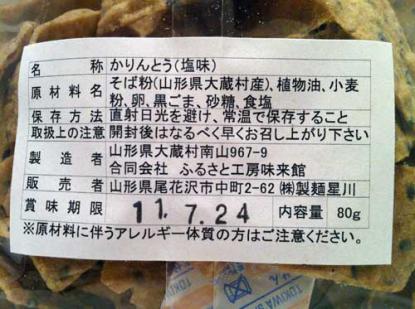 名 称 かりんとう(塩味)
原材料名 そば粉(山形県大蔵村産)、植物油、小麦
粉、卵、黒ごま、砂糖、食塩
保存方法 直射日光を避け、常温で保存すること
取扱上の注意 開封後はなるべく早くお召し上がり下さい
製造者 山形県大蔵村南山967-9
合同会社 ふるさと工房味来館
販売者 山形県尾花沢市中町2-62 ㈱製麺星川
賞味期限 11.7.24 内容量 80g
※原材料に伴うアレルギー体質の方はご注意ください。